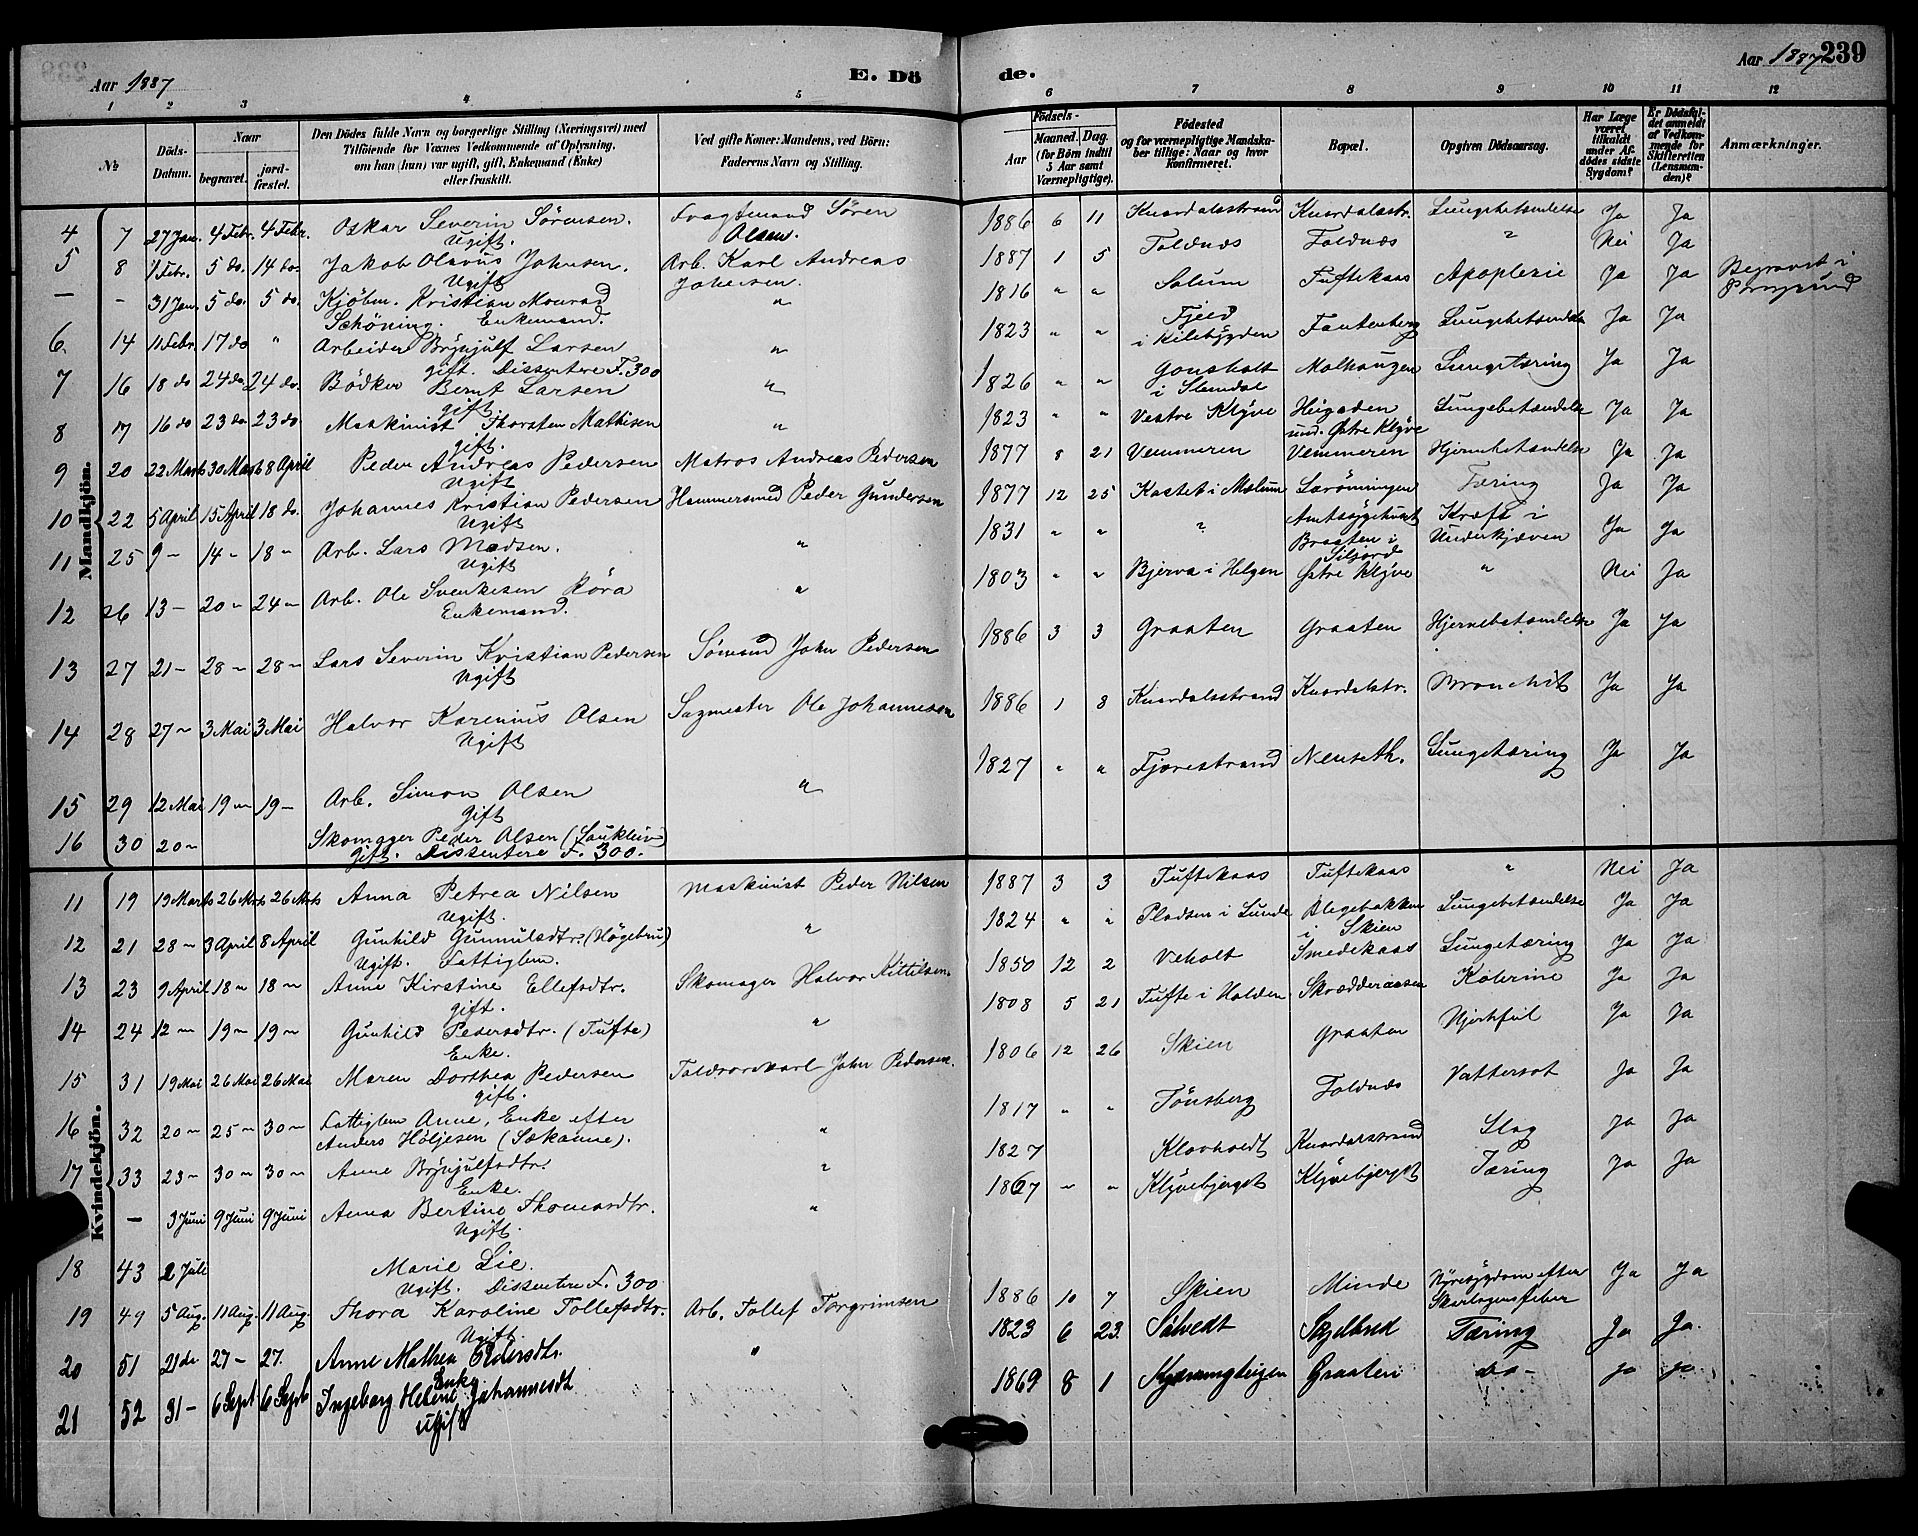 Aar 1887 E. Dö de. Aar 1887 239
1 2 3 4 5 6 7 8 9 10 11 12
№
Döds-Datum.
Naar
begravet.
jord-fæstet.
Den Dödes fulde Navn og borgerlige Stilling (Næringsvei) med
Tilföiende for Voxnes Vedkommende af Oplysning,
om han (hun) var ugift, gift, Enkemand (Enke)
eller fraskilt.
Ved gifte Koner: Mandens, ved Börn:
Faderens Navn og Stilling.
Födsels-
Aar
Maaned. Dag.
(for Börn indtil
5 Aar samt
Værnepligtige).
Födested
og for værnepligtige Mandska-
ber tillige: Naar og hvor
Konfirmeret.
Bopæl.
Opgiven Dödsaarsag.
Har Læge
været
tilkaldt
under Af-
dödes sidste
Sygdom?
Er Dödsfal-
det anmeldt
af Vedkom-
mende for
Skifteretten
(Lensman-
den)?
Anmærkninger.
Mandkjön.
4 7 27 Jan. 4 Febr. 4 Febr. Oskar Severin Sörensen. Ugift. Fragtemand Sören Olsen. 1886 6 11 Knardalsstrand Knardalsstr. Lungebetændelse Ja Ja
5 8 1 Febr. 5 do. 14 do. Jakob Olavus Johnsen. Ugift Arb. Karl Andreas Johnsen. 1887 1 5 Toldnæs Toldnæs " Nei Ja
— - 31 Jan. 5 do. 5 do. Kjöbm. Kristian Monrad Schöning. Enkemand. " 1816 " " Solum Tuftekaas Apoplexie Ja Ja Begravet i Porsgrund
6. 14 11 Febr. 17 do " Arbeider Brynjulf Larsen gift. Dissentere F. 300 " 1823 " " Fjeld i Kilebygden Fantenberg Lungebetændelse Ja Ja
7 16 18 do 24 do. 24 do. Bödker Bernt Larsen gift. " 1826 " " Gonsholt i Slemdal Molhaugen Lungetæring Ja Ja
8 17 16 do 23 do. 23 do Maskinist Thorsten Mathisen gift. " 1823 " " Vestre Klyve Heigaden und. Østre Klyve Lungebetændelse Ja Ja
9 20 22 Marts 30 Marts 8 April Peder Andreas Pedersen Ugift Matros Andreas Pedersen 1877 8 21 Vemmeren Vemmeren Hjernebetændelse Ja Ja
10 22 5 April 15 April 18 do. Johannes Kristian Pedersen Ugift Hammersmed Peder Gundersen 1877 12 25 Kastet i Mælum Larönningen Tæring Ja Ja
11 25 9 - 14 - 18 - Arb. Lars Madsen. Ugift " 1831 " " ? Amtssygehuset Braaten i Siljord Kræft i Underkjæven Ja Ja
12 26 13 - 20 - 24 - Arb. Ole Svenkesen Röra Enkemand. " 1803 " " Bjerva i Helgen Østre Klyve " Nei Ja
13 27 21 - 28 - 28 - Lars Severin Kristian Pedersen Ugift Sömand John Pedersen 1886 3 3 Graaten Graaten Hjernebetændelse Ja Ja
14 28 27 - 3 Mai 3 Mai Halvor Karenius Olsen Ugift Sagmester Ole Johannesen 1886 1 8 Knardalsstrand Knardalstr. Bronchit Ja Ja
15 29 12 Mai 19 - 19 - Arb. Simon Olsen Gift " 1827 " " Fjærestrand Nenseth. Lungetæring Ja Ja
16 30 20 - Skomager Peder Olsen gift. Dissentere F. 300.
Kvindekjön.
11 19 19 Marts 26 Mrts 26 Mrts Anna Petrea Nilsen Ugift. Maskinist Peder Nilsen 1887 3 3 Tuftekaas Tuftekaas " Nei Ja
12 21 28 - 3 April 8 April Gunhild Gunnulsdtr. (Högebru) Ugift. Fattiglem. " 1824 " " Pladsen i Lunde Blegebakken i Skien Lungebetændelse Ja Ja
13 23 9 April 18 - 18 - Anne Kirstine Ellefsdtr. gift. Skomager Halvor Kittilsen. 1850 12 2 Veholt Smedekaas Lungetæring Ja Ja
14 24 12 - 19 - 19 - Gunhild Pedersdtr. (Tufte) Enke. " 1808 5 21 Tufte i Holden Skrædderaasen Kolerine Ja Ja
15 31 19 Mai 26 Mai 26 Mai Maren Dorthea Pedersen gift. Toldrorskarl John Pedersen. 1806 12 26 Skien Graaten Hjertefeil Ja Ja
16 32 20 - 25 - 30 - Fattiglem Anne, Enke efter Anders Höljesen (Sækanne). " 1817 " " Tönsberg Toldnæs Vattersot Ja Ja
17 33 23 - 30 - 30 - Anne Brynjulfsdtr. Enke. " 1827 Klovholdt Knardalsstrand Slag Ja Ja
— 3 Juni 9 Juni 9 Juni Anna Bertine Thomasdtr. Ugift. " 1867 " " Klyvebjerget Klyvebjerget Tæring Ja Ja
18 43 2 Juli Marie Lie. Ugift. Dissentere F. 300
19 49 5 Aug. 11 Aug. 11 Aug. Thora Karoline Tollefsdtr. Ugift. Arb. Tollef Torgrimsen 1886 10 7 Skien Minde Nyresygdom efter Skarlagensfeber Ja Ja
20 51 21 do 27 - 27. Anne Mathea Pedersdtr. Enke " 1823 6 23. Sølvedt Tæring Ja Ja.
21 52 31 - 6 Sept 6 Septb Ingeborg Helene Johannesdt ugift 1869 8 1 Graaten do - Ja Ja